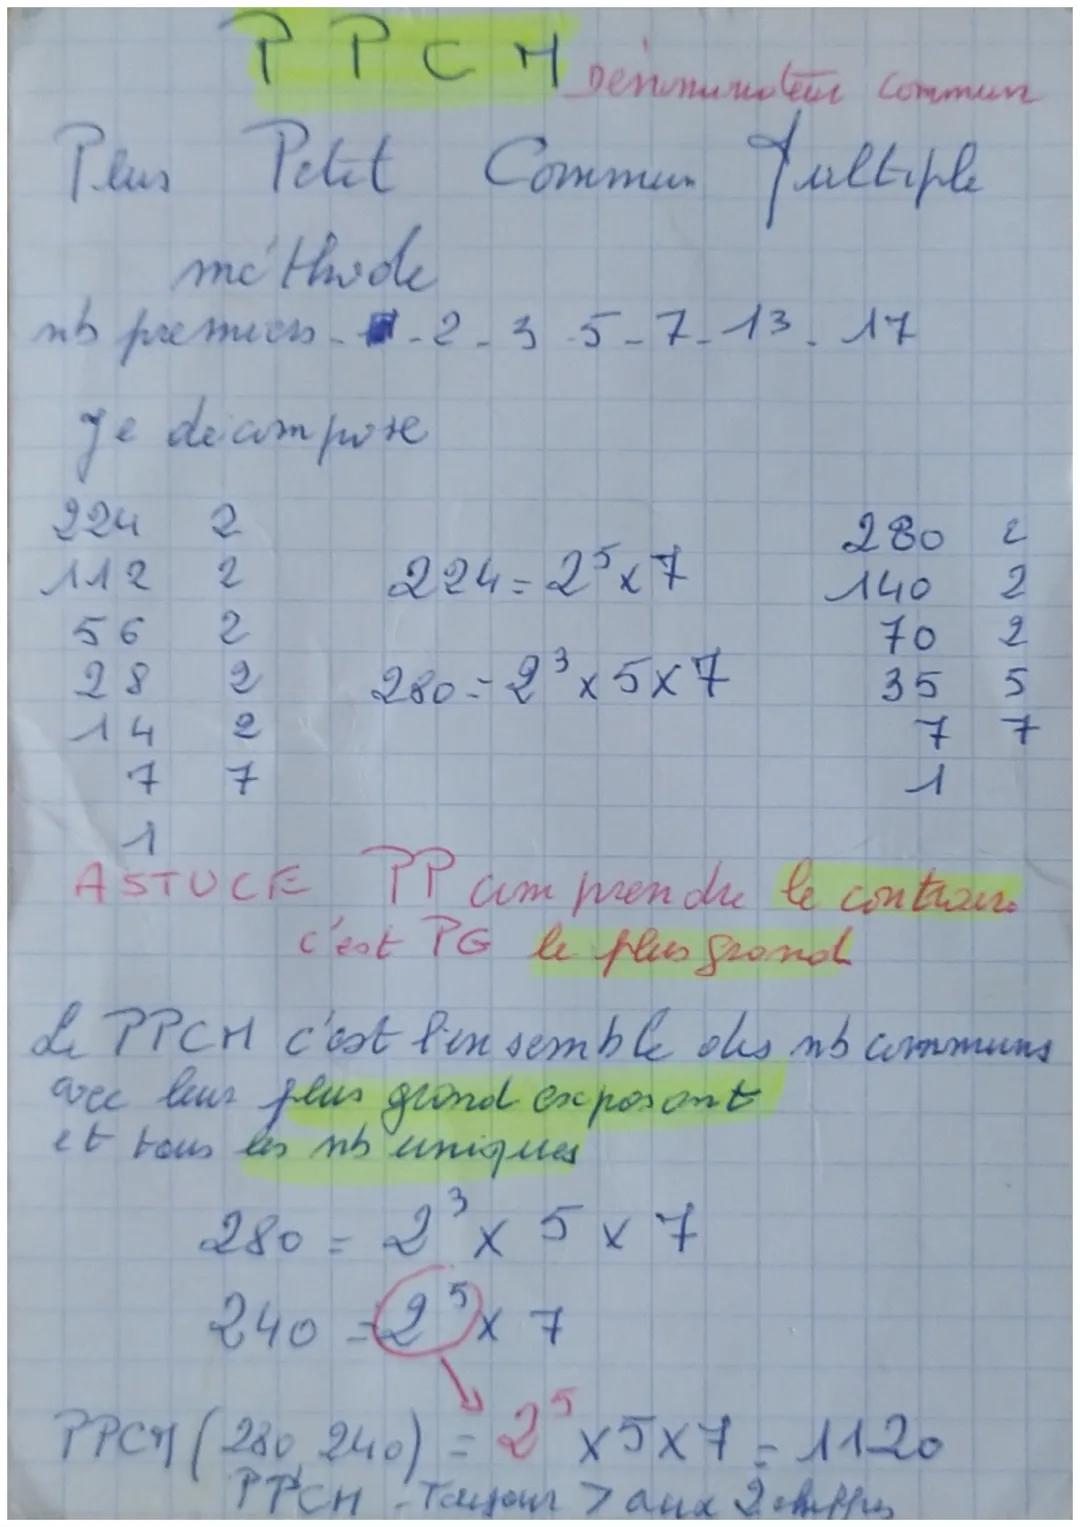 PPCM Dénominateur commun
Plus Petit Commun Multiple
méthode
nb premiers - - 2 - 3 - 5 - 7 - 13 - 17
Je décompose
224 2
112 2
56 2
28 2
14 2
7 7
1
224 = 2⁵ x 7
280 = 2³ x 5 x 7
280 2
140 2
70 2
35 5
7 7
1
ASTUCE PP comprendre le contraire
c'est PG le plus grand
Le PPCM c'est l'ensemble des nb communs
avec leur plus grand exposant
et tous les nb uniques
280 = 2³ x 5 x 7
240 = 2⁵ x 7
PPCM (280, 240) = 2⁵ x 5 x 7 = 1120
PPCM - Toujour > aux 2 chiffres